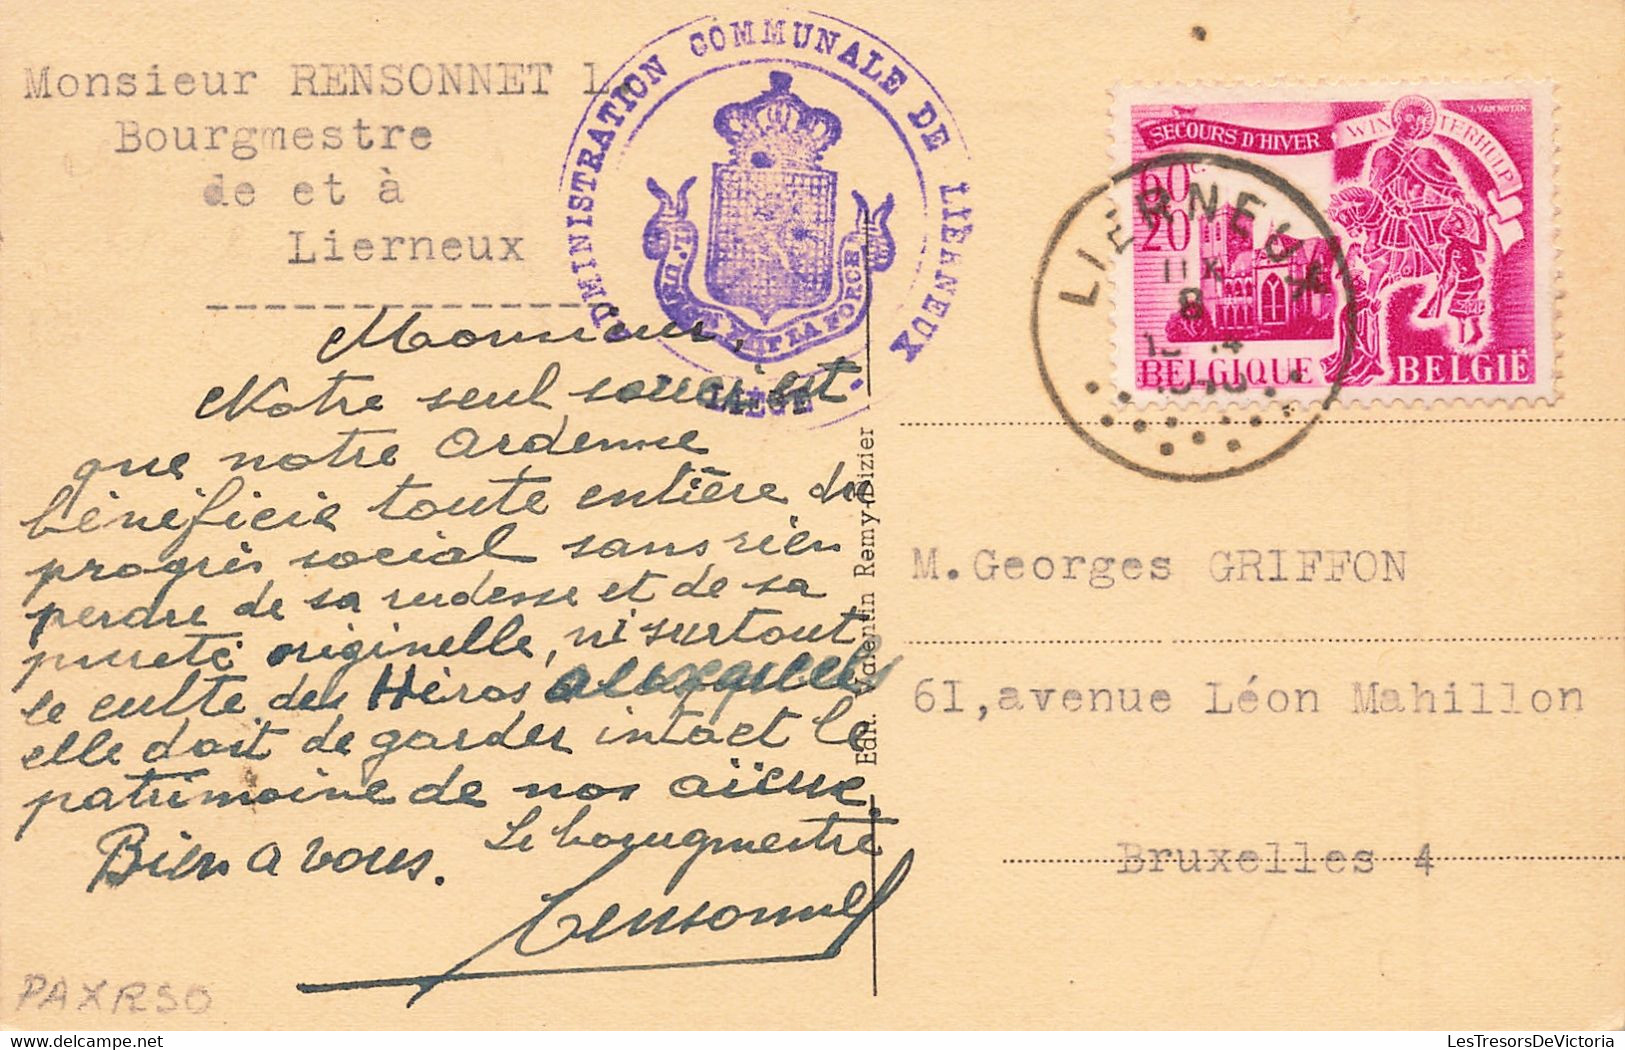 Monsieur RENSONNET L
Bourgmestre
de et à
Lierneux
ADMINISTRATION COMMUNALE DE LIERNEUX
L'UNION FAIT LA FORCE
LIÉGE
SECOURS D'HIVER WINTERHULP
J. VAN NOTEN
60c
20
BELGIQUE BELGIË
LIERNEUX
8
Monsieur,
Notre seul souci est
que notre Ardenne
bénéficie toute entière du
progrès social sans rien
perdre de sa rudesse et de sa
pureté originelle, ni surtout
le culte des Héros auxquels
elle doit de garder intact le
patrimoine de nos aïeux.
Bien a vous. Le bourgmestre
Rensonnet
Edit. Valentin Remy-Dizier
M. Georges GRIFFON
61, avenue Léon Mahillon
Bruxelles 4
PAXRSO
LesTresorsDeVictoria